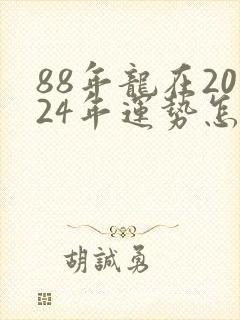 88年龍在20
24年運勢怎
胡誠勇